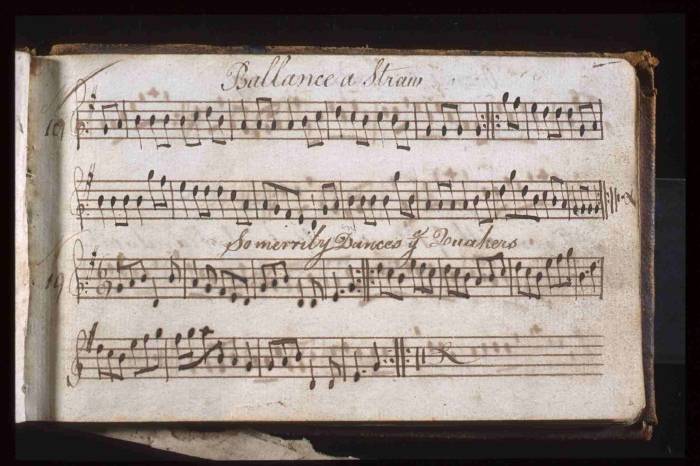 Ballance a Straw
So merrily Dances ye Quakers
19